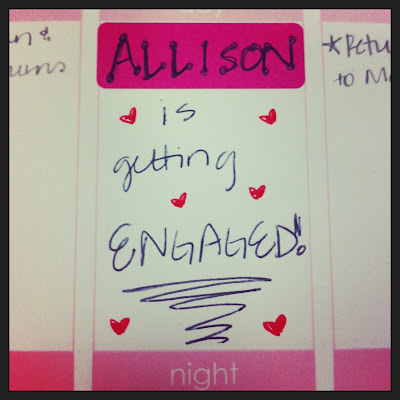 ALLISON
is
getting
ENGAGED!
night
&
*Retu
to M